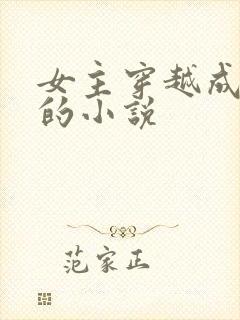 女主穿越成
的小說
范家正